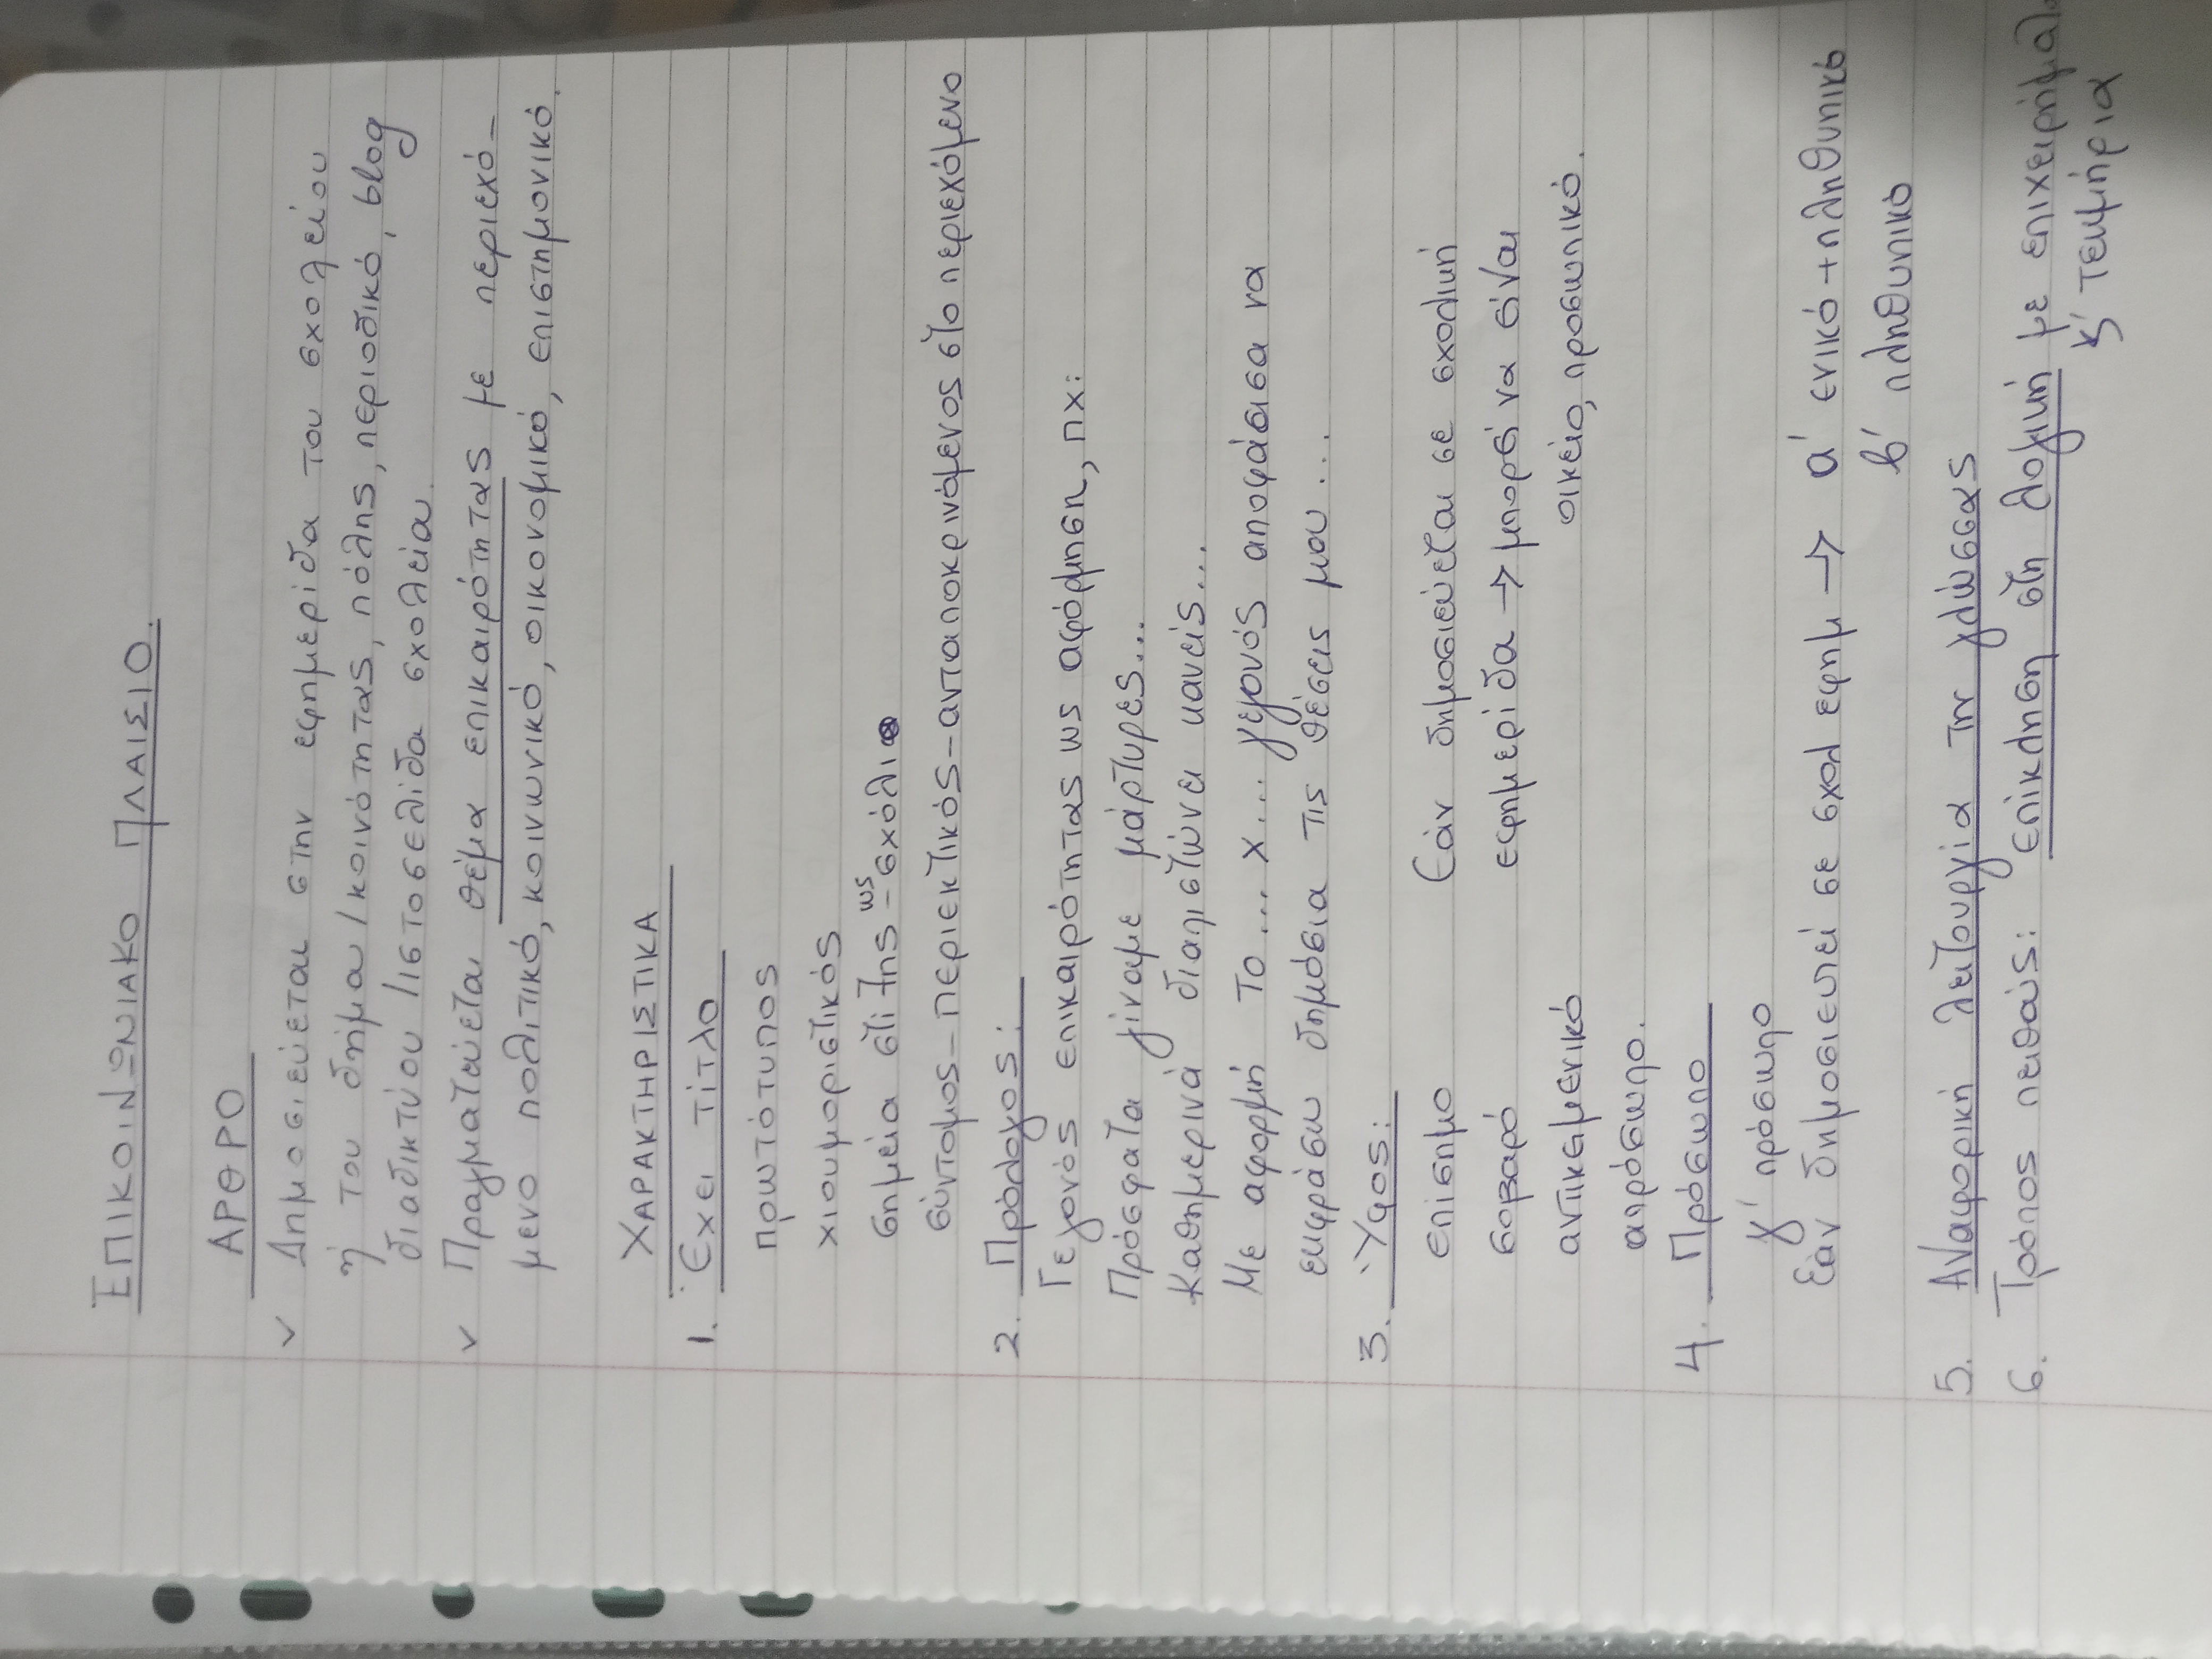 ἘΠΙΚΟΙΝΩΝΙΑΚΟ ΠΛΑΙΣΙΟ.
ΑΡΘΡΟ
✓ Δημοσιεύεται στην εφημερίδα του σχολείου
ή του δήμου/κοινότητας, πόλης, περιοδικό, blog
διαδικτύου/ιστοσελίδα σχολείου.
✓ Πραγματεύεται θέμα επικαιρότητας με περιεχό-
μενο πολιτικό, κοινωνικό, οικονομικό, επιστημονικό.
ΧΑΡΑΚΤΗΡΙΣΤΙΚΑ
1. Έχει τίτλο
πρωτότυπος
χιουμοριστικός
σημεία στίξης - ως σχόλιο
σύντομος - περιεκτικός - ανταποκρινόμενος στο περιεχόμενο
2. Πρόλογος:
Γεγονός επικαιρότητας ως αφόρμηση, πχ:
Πρόσφατα γίναμε μάρτυρες...
Καθημερινά διαπιστώνει κανείς...
Με αφορμή το... χ... γεγονός αποφάσισα να
εκφράσω δημόσια τις θέσεις μου...
3. Ύφος:
επίσημο Εάν δημοσιεύεται σε σχολική
σοβαρό εφημερίδα → μπορεί να είναι
αντικειμενικό οικείο, προσωπικό.
απρόσωπο.
4. Πρόσωπο
γ' πρόσωπο
Εάν δημοσιευτεί σε σχολ εφημ → α' ενικό + πληθυντικό
β' πληθυντικό
5. Αναφορική λειτουργία της γλώσσας
6. Τρόπος πειθούς: επίκληση στη λογική με επιχειρήμα
κ' τεκμήρια